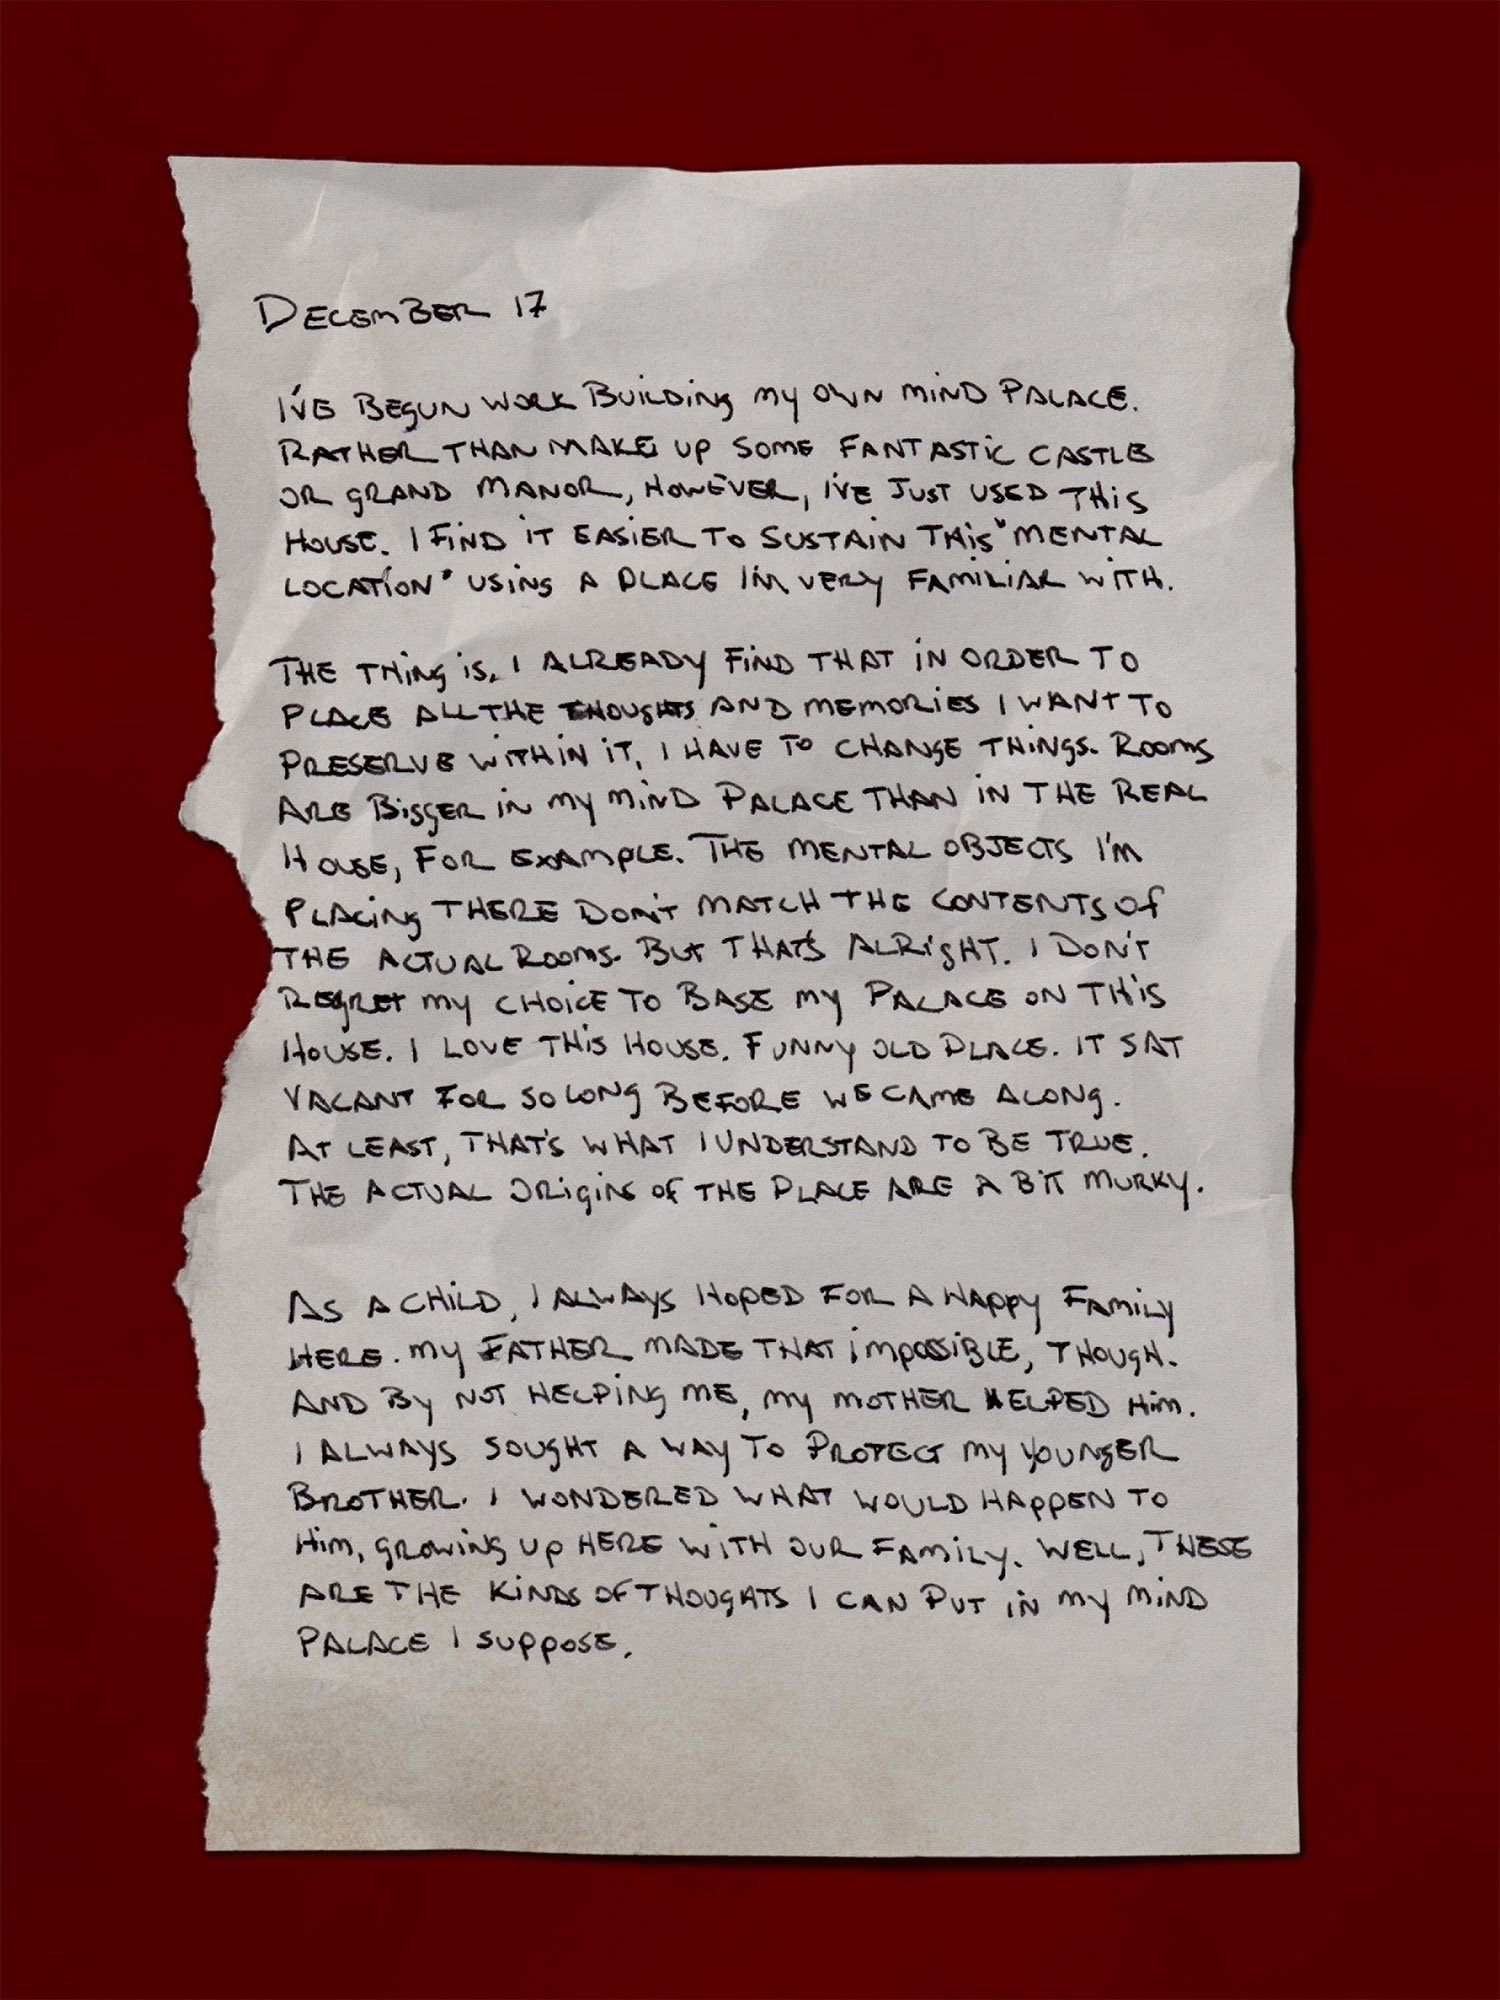 DECEMBER 17
I'VE BEGUN WORK BUILDING MY OWN MIND PALACE.
RATHER THAN MAKE UP SOME FANTASTIC CASTLE
OR GRAND MANOR, HOWEVER, I'VE JUST USED THIS
HOUSE. I FIND IT EASIER TO SUSTAIN THIS "MENTAL
LOCATION" USING A PLACE I'M VERY FAMILIAR WITH.
THE THING IS, I ALREADY FIND THAT IN ORDER TO
PLACE ALL THE THOUGHTS AND MEMORIES I WANT TO
PRESERVE WITHIN IT, I HAVE TO CHANGE THINGS. ROOMS
ARE BIGGER IN MY MIND PALACE THAN IN THE REAL
HOUSE, FOR EXAMPLE. THE MENTAL OBJECTS I'M
PLACING THERE DON'T MATCH THE CONTENTS OF
THE ACTUAL ROOMS. BUT THAT'S ALRIGHT. I DON'T
REGRET MY CHOICE TO BASE MY PALACE ON THIS
HOUSE. I LOVE THIS HOUSE. FUNNY OLD PLACE. IT SAT
VACANT FOR SO LONG BEFORE WE CAME ALONG.
AT LEAST, THAT'S WHAT I UNDERSTAND TO BE TRUE.
THE ACTUAL ORIGINS OF THE PLACE ARE A BIT MURKY.
AS A CHILD, I ALWAYS HOPED FOR A HAPPY FAMILY
HERE. MY FATHER MADE THAT IMPOSSIBLE, THOUGH.
AND BY NOT HELPING ME, MY MOTHER HELPED HIM.
I ALWAYS SOUGHT A WAY TO PROTECT MY YOUNGER
BROTHER. I WONDERED WHAT WOULD HAPPEN TO
HIM, GROWING UP HERE WITH OUR FAMILY. WELL, THESE
ARE THE KINDS OF THOUGHTS I CAN PUT IN MY MIND
PALACE I SUPPOSE.